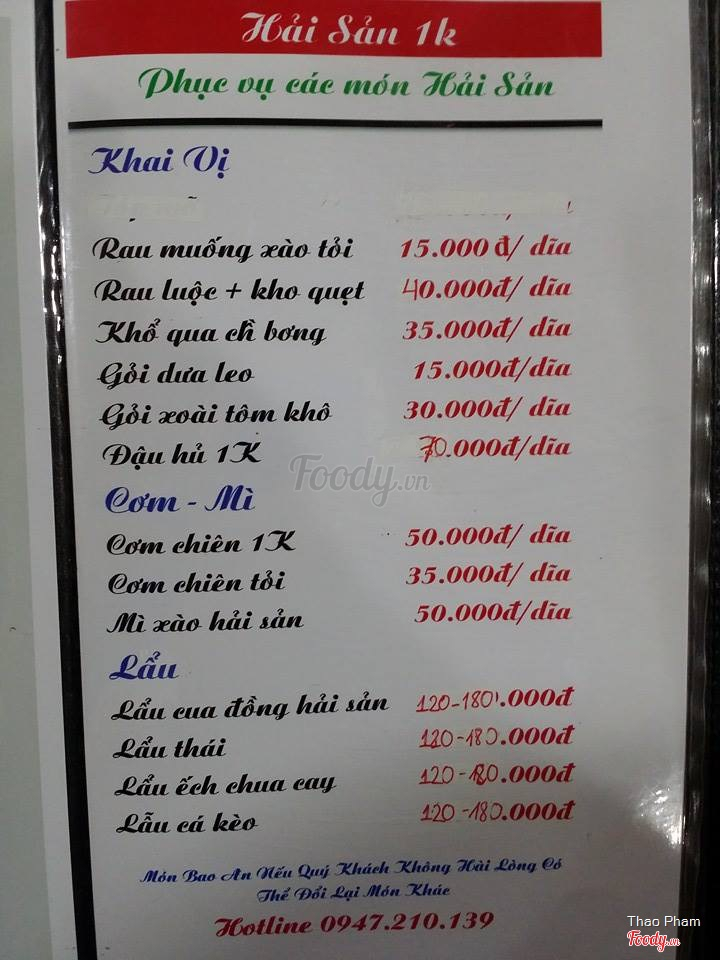 Hải Sản 1k
Phục vụ các món Hải Sản
Khai Vị
Rau muống xào tỏi 15.000 đ/ dĩa
Rau luộc + kho quẹt 40.000đ/ dĩa
Khổ qua chà bơng 35.000đ/ dĩa
Gỏi dưa leo 15.000đ/dĩa
Gỏi xoài tôm khô 30.000đ/dĩa
Đậu hủ 1K 70.000đ/dĩa
Foody.vn
Cơm - Mì
Cơm chiên 1K 50.000đ/ dĩa
Cơm chiên tỏi 35.000đ/ dĩa
Mì xào hải sản 50.000đ/dĩa
Lẩu
Lẩu cua đồng hải sản 120-180.000đ
Lẩu thái 120-180.000đ
Lẩu ếch chua cay 120-180.000đ
Lẫu cá kèo 120-180.000đ
Món Bao Ăn Nếu Quý Khách Không Hài Lòng Có
Thể Đổi Lại Món Khác
Hotline 0947.210.139
Thao Pham
Foody.vn